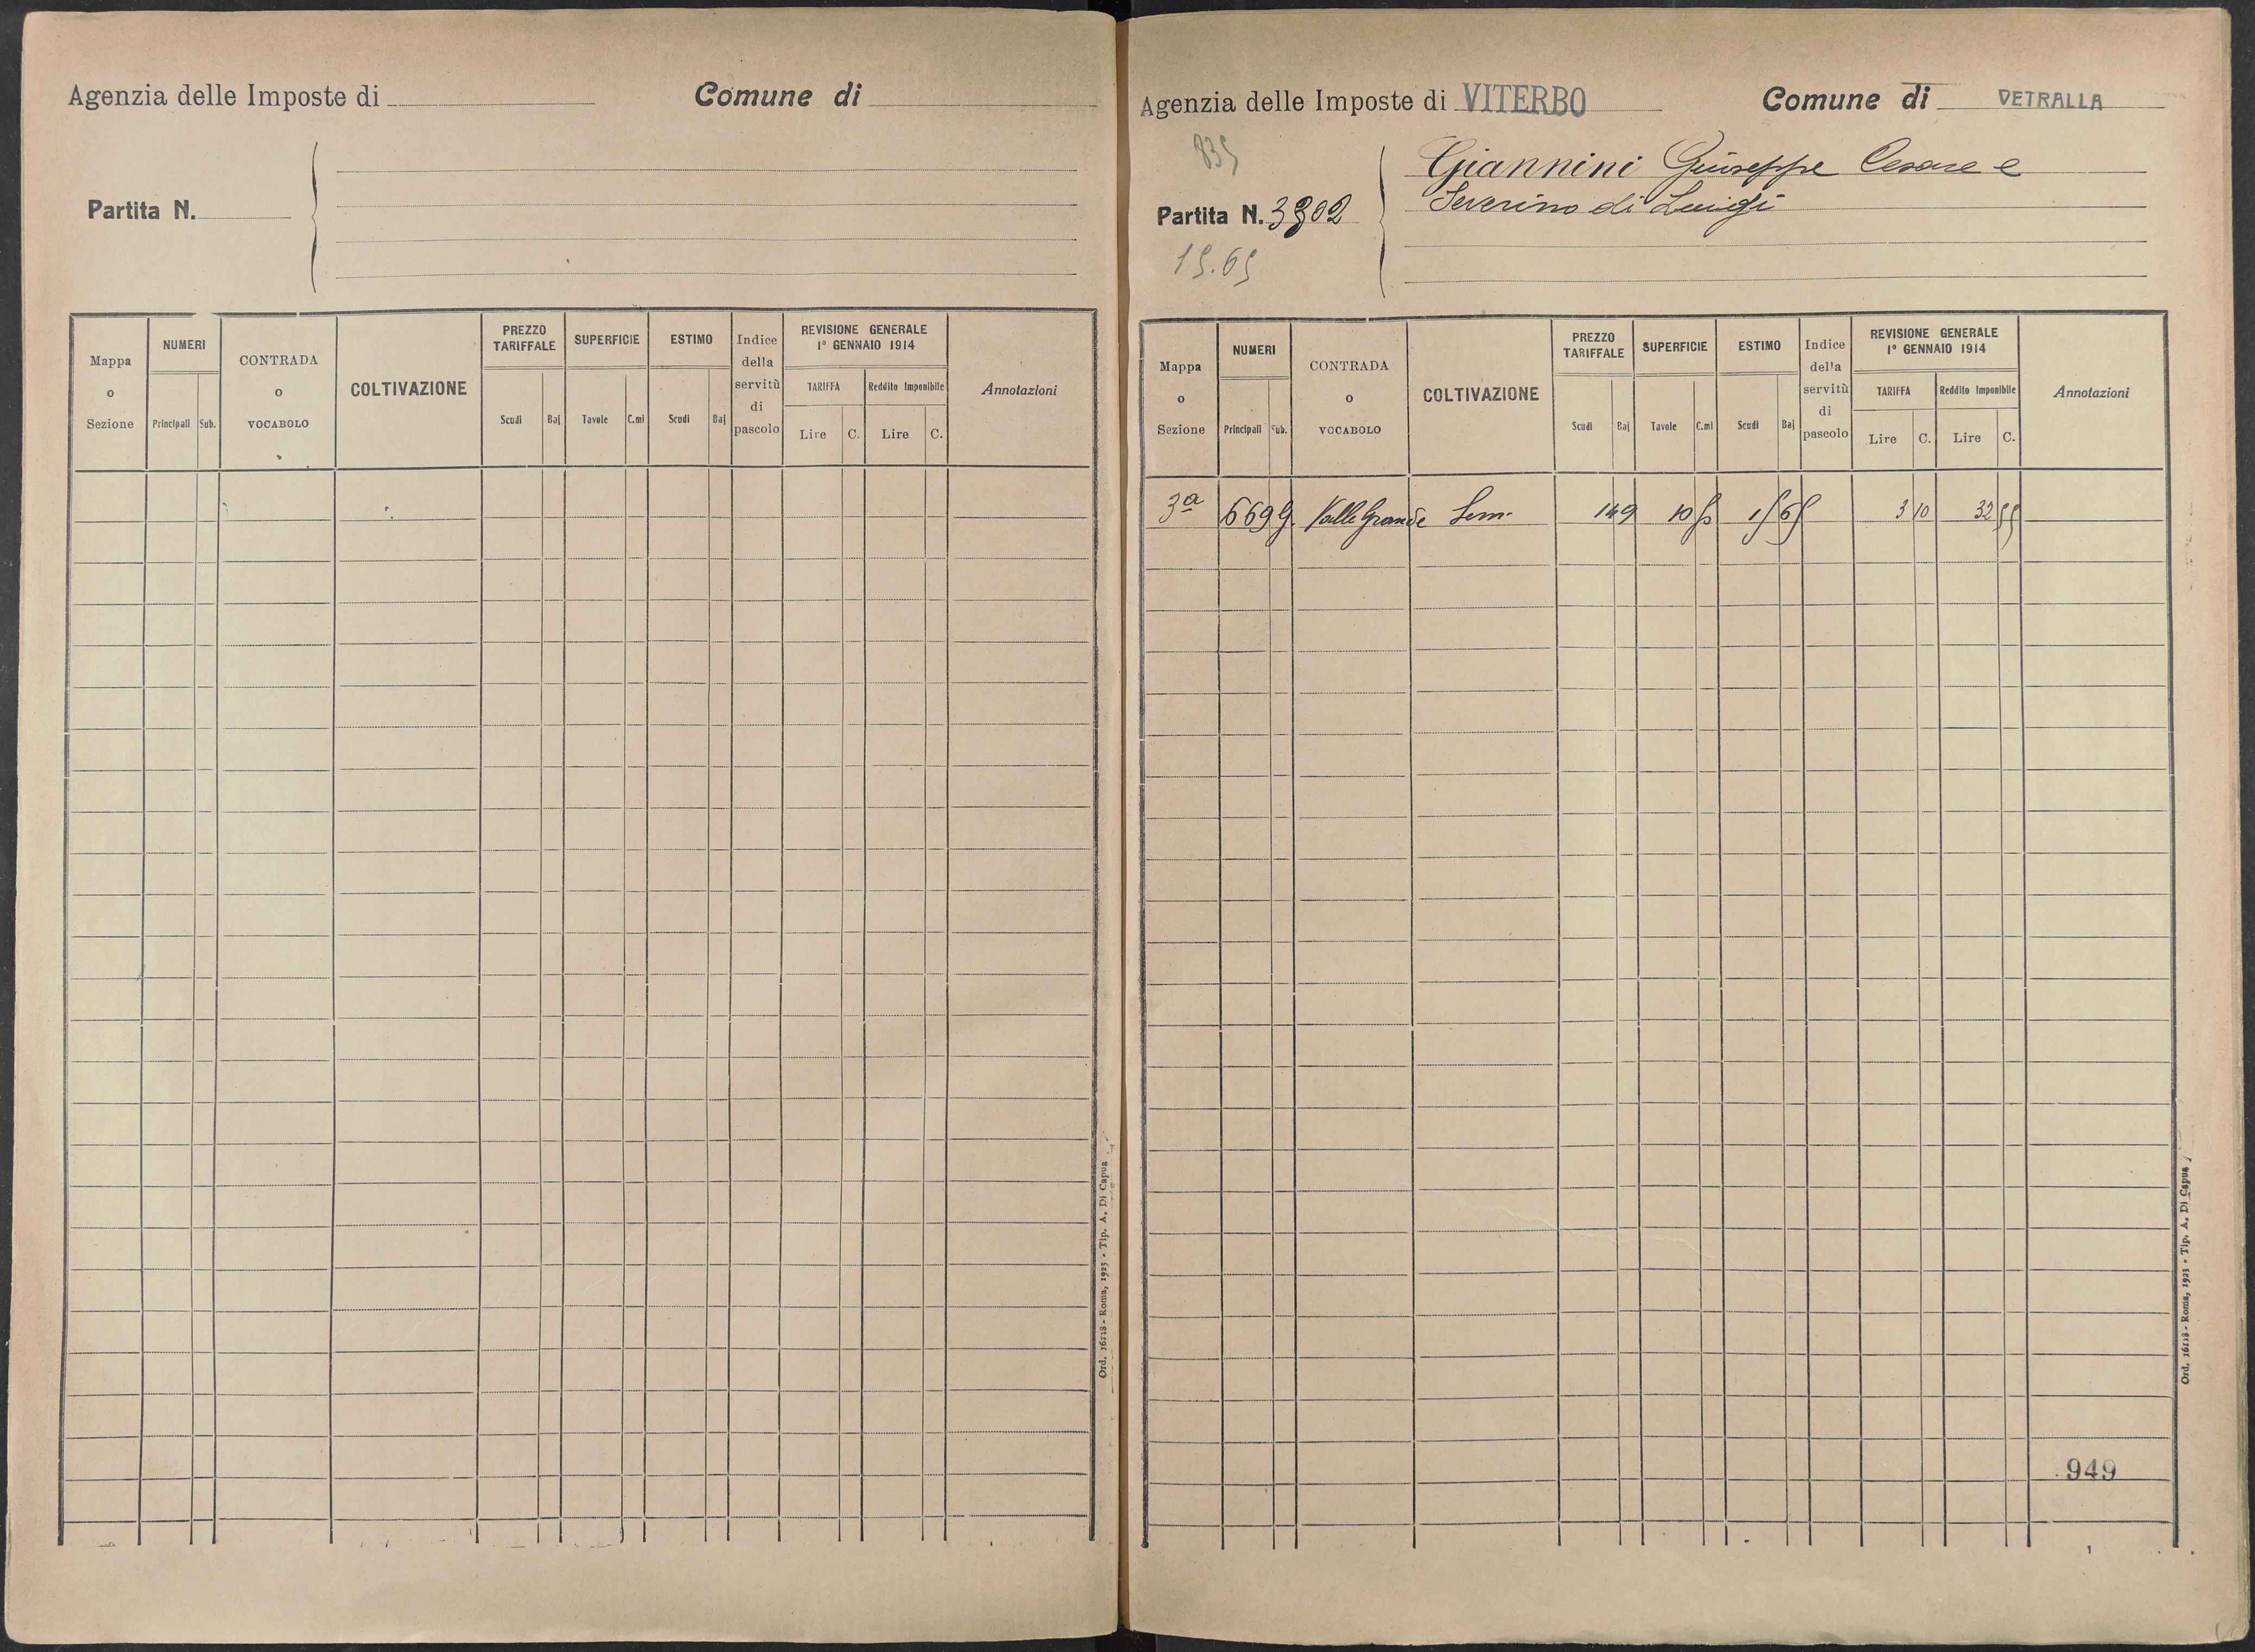 Agenzia delle Imposte di Comune di
Partita N.
Mappa o Sezione
NUMERI
Principali Sub.
CONTRADA o VOCABOLO
COLTIVAZIONE
PREZZO TARIFFALE
Scudi Baj
SUPERFICIE
Tavole C.mi
ESTIMO
Scudi Baj
Indice della servitù di pascolo
REVISIONE GENERALE
1° GENNAIO 1914
TARIFFA Reddito Imponibile
Lire C. Lire C.
Annotazioni
Ord. 16118 - Roma, 1923 - Tip. A. Di Capua
Agenzia delle Imposte di VITERBO Comune di VETRALLA
835
Giannini Giuseppe Cesare e
Severino di Luigi
Partita N. 3902
15.65
Mappa o Sezione
NUMERI
Principali Sub.
CONTRADA o VOCABOLO
COLTIVAZIONE
PREZZO TARIFFALE
Scudi Baj
SUPERFICIE
Tavole C.mi
ESTIMO
Scudi Baj
Indice della servitù di pascolo
REVISIONE GENERALE
1° GENNAIO 1914
TARIFFA Reddito Imponibile
Lire C. Lire C.
Annotazioni
3ª 669 Valle Grande Sem. 1 49 10 5 15 65 3 10 32 55
949
Ord. 16118 - Roma, 1923 - Tip. A. Di Capua